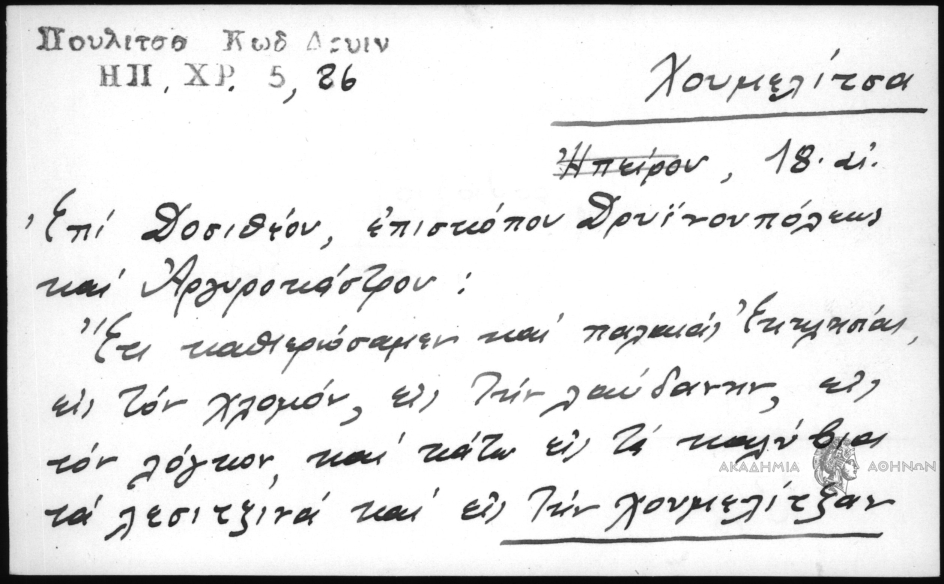 Πουλιτσα Κωδ Δρυιν
ΗΠ. ΧΡ. 5, 86
Χουμελίτσα
Ἠπείρου, 18. αἰ.
Ἐπί Δοσιθέου, ἐπισκόπου Δρυϊνουπόλεως
καί Ἀργυροκάστρου :
Ἔτι καθιερώσαμεν καί παλαιάς Ἐκκλησίας,
εἰς τόν χλομόν, εἰς τήν λαύδανην, εἰς
τόν λόγκον, καί κάτω εἰς τά καλύβια
ΑΚΑΔΗΜΙΑ ΑΘΗΝΩΝ
τά λεσιτζινά καί εἰς τήν χουμελίτζαν